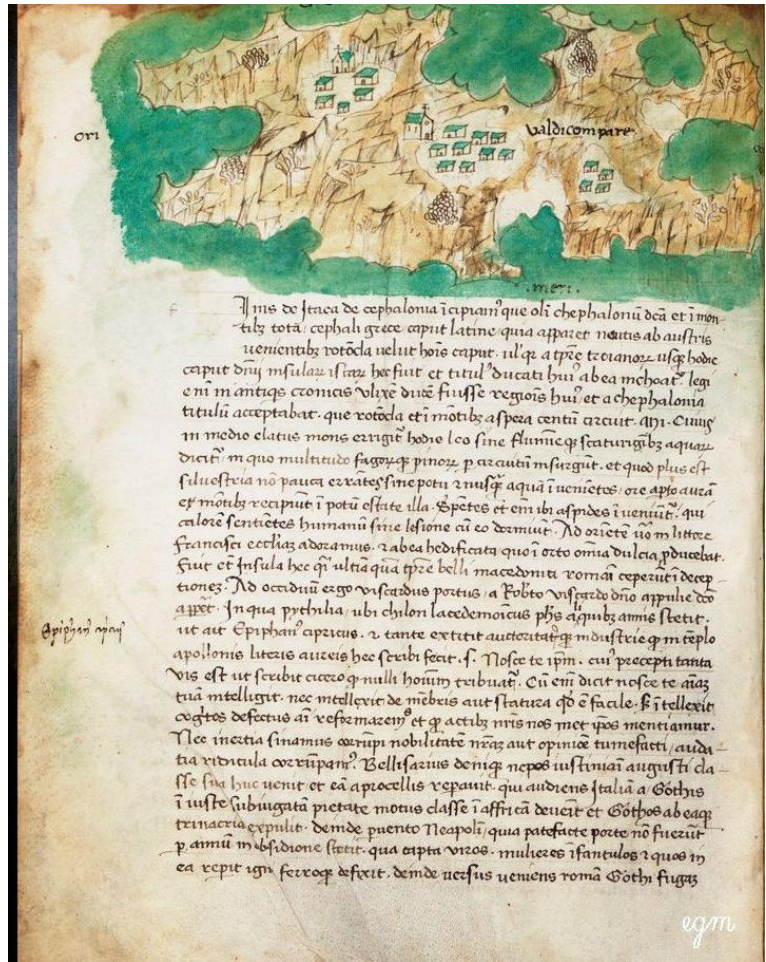 ori
valdicompare
.meri.
Inis de Itaca de cephalonia icipiam' que oli chephaloniu dca et i mon-
tibz tota, cephali grece caput latine quia apparet nautis ab austris
uenientibz rotoda uelut hois caput.
caput dnij insular istar hec fuit et titul' ducati hui' ab ea inchoat. legi
e ni in antiqs cronicis Ulixe duce fuisse regiois hui' et a chephalonia
titulu acceptabat. que rotoda et i motibz aspera centu circuit. Cuius
in medio elatus mons errigit hodie leo sine flumineqz scaturigibz aquar
dicit, in quo multitudo fagorqz pinorz p circuitu insurgut. et quod plus est
silvestria no pauca errates sine potu
ex motibz recipiut i potu estate illa. Spetes et eni ibi aspides i ueniut, qui
calore sentietes humanu sine lesione cu eo dormiut. Ad oriete uo in littore
francisci eccliaz adoramus. 2 ab ea hedificata quo i orto omia dulcia pducebat.
fuit et Insula hec qi ultia qua tpre belli macedonici romai ceperut i decep
tionez. Ad occiduu ergo viscardus portus, a Robto viscardo dno appulie dco
appet. In qua pythilia, ubi chilon lacedemoicus phs aliquibz annis stetit.
Epiphan'
ut ait Epiphan' cipricus. 2 tante extitit auctoritat' industrie qz in teplo
apollonis literis aureis hec scribi fecit. s. Nosce te ipm. cui' precepti tanta
vis est ut scribit cicero qz nulli hoium tribuat. Cu eni dicit nosce te aiaz
tua intelligit. nec intellexit de mebris aut statura qd e facile. s; i tellexit
cogtos defectus ai reformarem' et qz actibz nris nos met ipos mentiamur.
Nec inertia sinamus corrupi nobilitate nraz aut opinioe tumefacti, auda-
tia ridicula corrupam'. Bellisarius deniqz nepos iustiniai augusti cla-
sse sua huc uenit et ea a procellis reparuit. qui audiens Italia a Gothis
i iuste subiugata pietate motus classe i affrica deueit et Gothos ab eaqz
trinacria expulit. deinde puento Neapoli, quia patefacte porte no fuerut
p annu in obsidione stetit. qua capta viros. mulieres ifantulos 2 quos in
ea repit igni ferroqz defixit. deinde uersus ueniens roma Gothi fugaz
egm